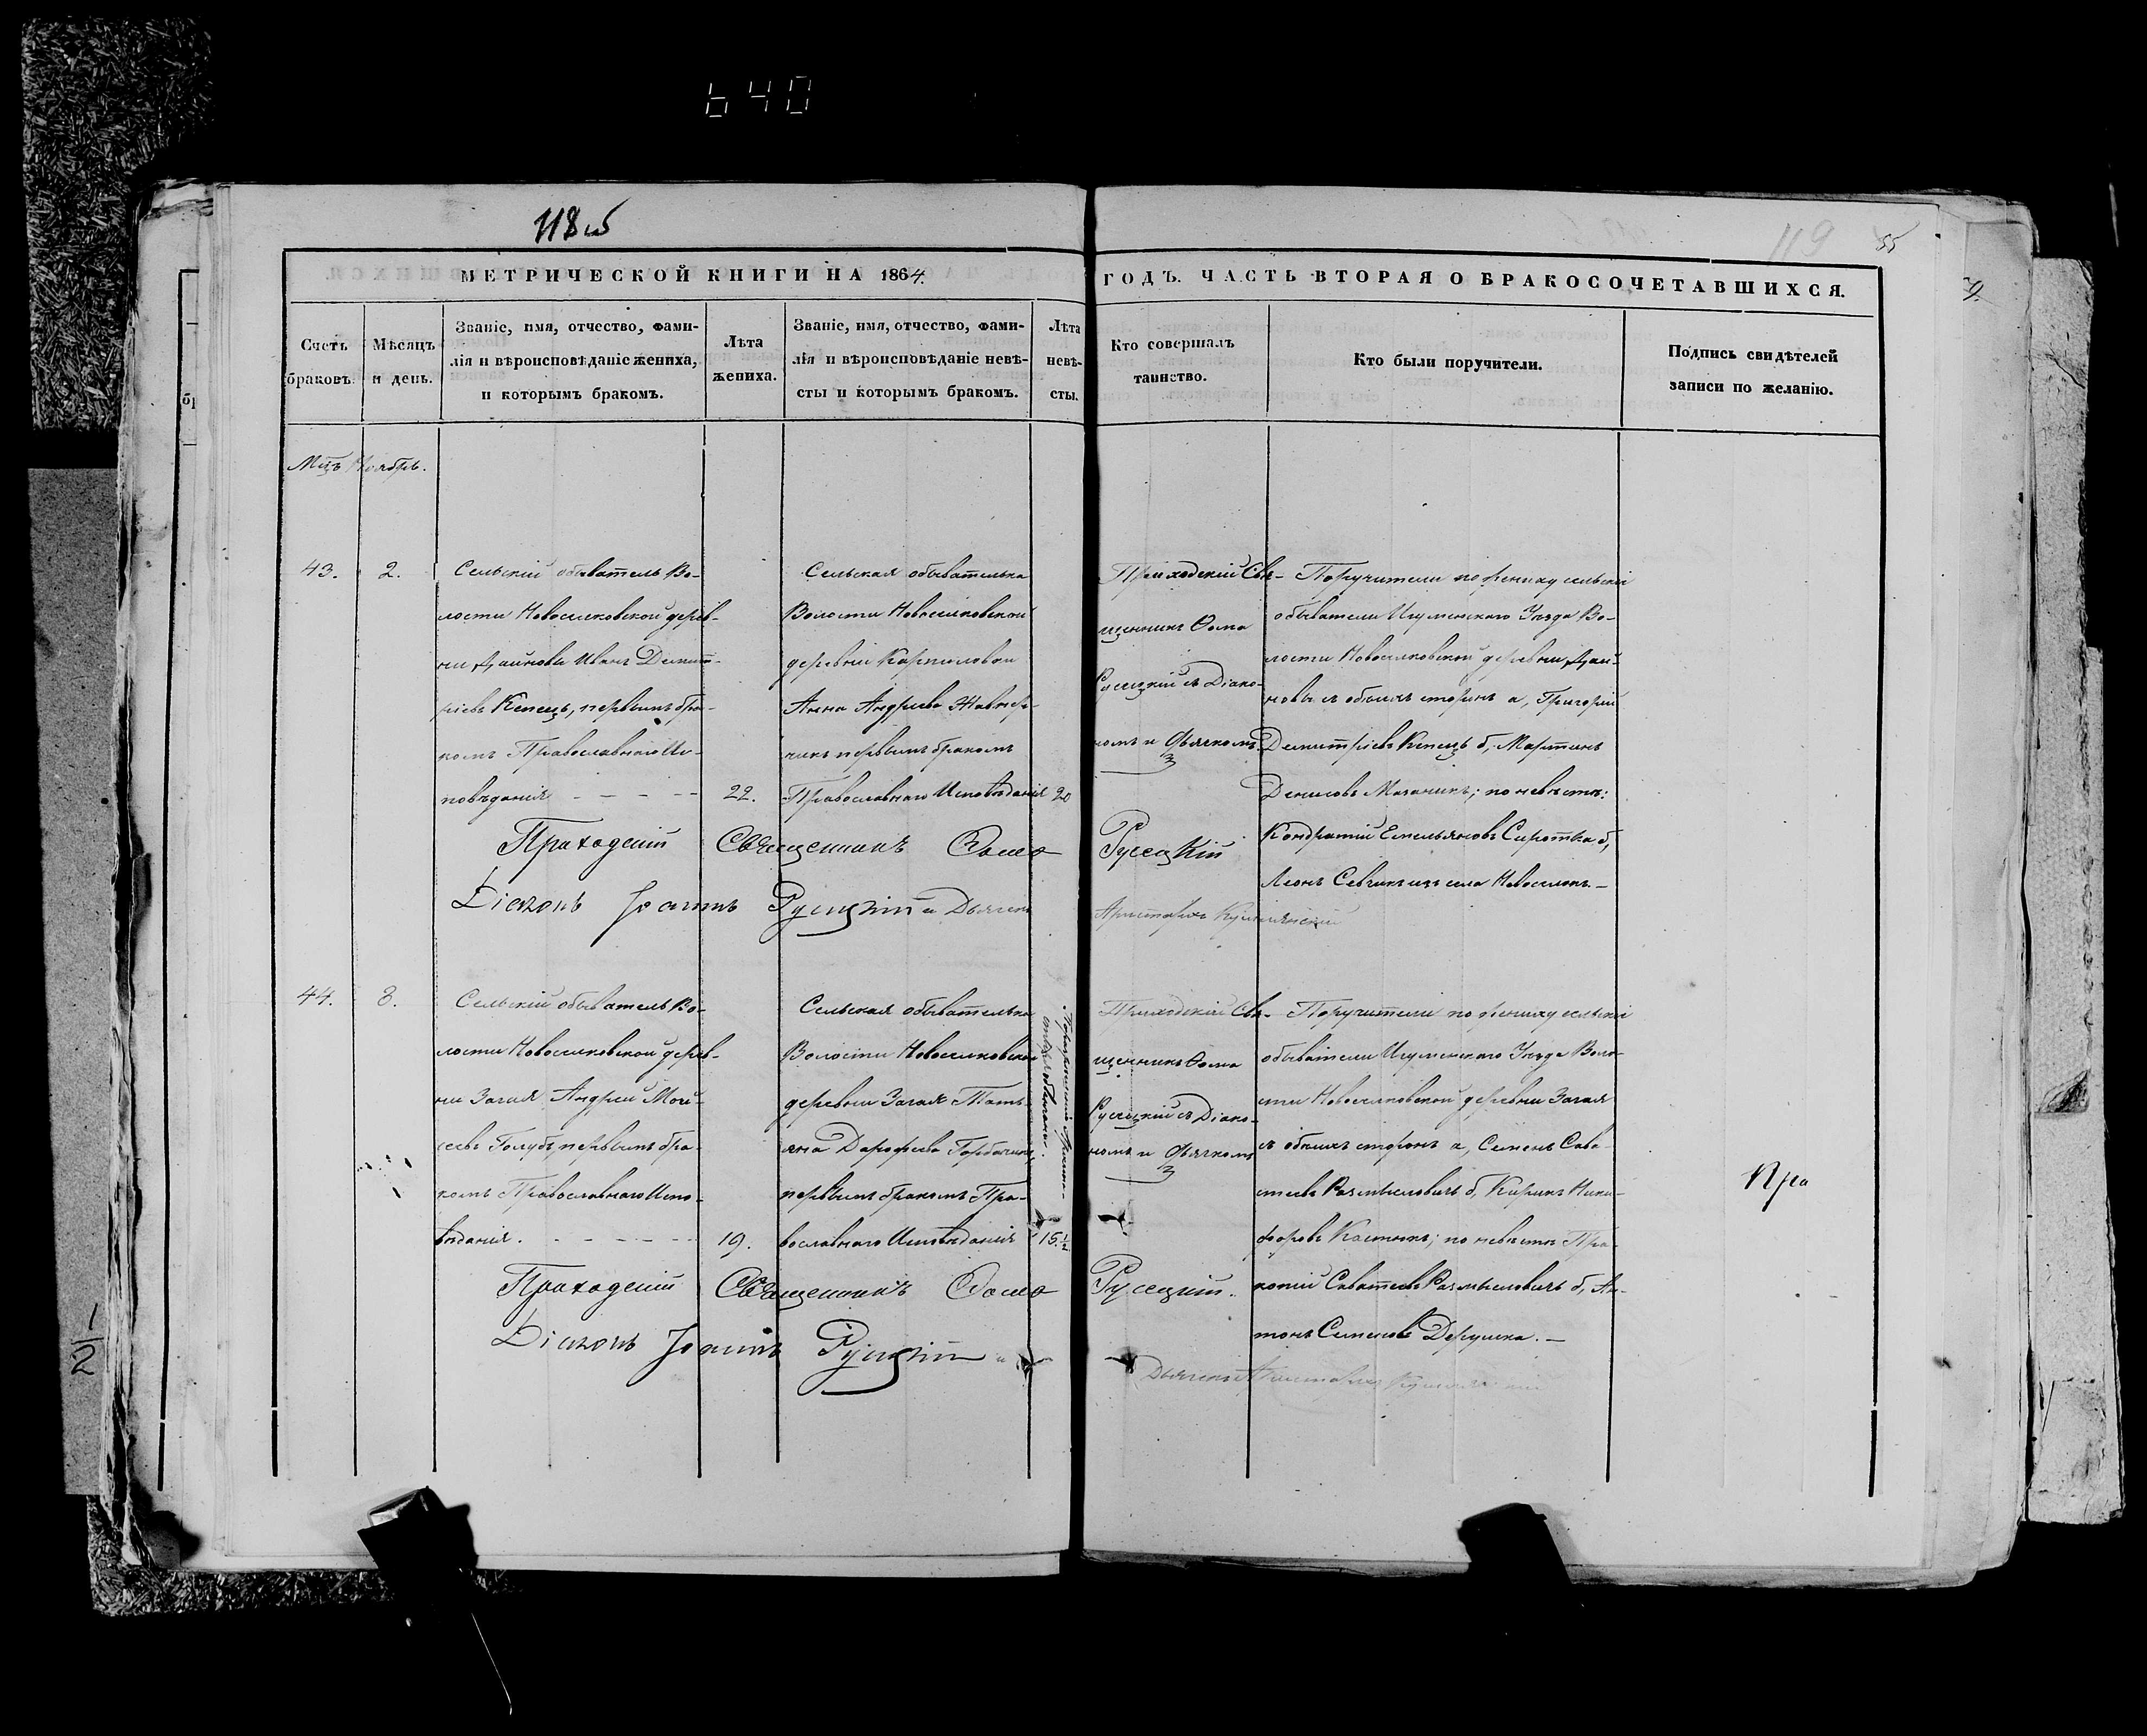 640
118 об
119
55
МЕТРИЧЕСКОЙ КНИГИ НА 1864
ГОДЪ. ЧАСТЬ ВТОРАЯ О БРАКОСОЧЕТАВШИХСЯ.
Счетъ
браковъ.
Мѣсяцъ
и день.
Званіе, имя, отчество, фами-
лія и вѣроисповѣданіе жениха,
и которымъ бракомъ.
Лѣта
жениха.
Званіе, имя, отчество, фами-
лія и вѣроисповѣданіе невѣ-
сты и которымъ бракомъ.
Лѣта
невѣ-
сты.
Кто совершалъ
таинство.
Кто были поручители.
Подпись свидѣтелей
записи по желанію.
Мцъ Ноябрь.
43.
2.
Сельскій обыватель Во-
лости Новоселковской дерев-
ни Дайновы Иванъ Димит-
ріевъ Кепецъ, первымъ бра-
комъ Православнаго Ис-
повѣданія
22.
Сельская обывателька
Волости Новоселковской
деревни Карпиловки
Анна Андреева
первымъ бракомъ
Православнаго Исповѣданія
20
Приходскій Свя-
щенникъ Ѳома
Русецкій съ Діако-
номъ и Дьячкомъ
Поручители по жениху сельскіе
обыватели Игуменскаго Уѣзда Во-
лости Новоселковской деревни Дай-
новы съ обоихъ сторонъ а, Григорій
Димитріевъ Кепецъ б, Мартинъ
Денисовъ ; по невѣстѣ:
Кондратій Емельяновъ Сиротка б,
Леонъ Севчикъ изъ села Новоселокъ.—
Приходскій Священникъ Ѳома Русецкій
Діаконъ Іоаннъ Русецкій и Дьячекъ
44.
8.
Сельскій обыватель Во-
лости Новоселковской дерев-
ни Загая Андрей Мои-
сеевъ Голубъ, первымъ бра-
комъ Православнаго Испо-
вѣданія.
19.
Сельская обывателька
Волости Новоселковской
деревни Загая Тать-
яна Дорофеева
первымъ бракомъ Пра-
вославнаго Исповѣданія
15 1/2
Приходскій Свя-
щенникъ Ѳома
Русецкій съ Діако-
номъ и Дьячкомъ
Поручители по жениху сельскіе
обыватели Игуменскаго Уѣзда Воло-
сти Новоселковской деревни Загая
съ обоихъ сторонъ а, Семенъ Сава-
стеевъ Размысловичъ б, Кирикъ Ники-
форовъ ; по невѣстѣ Про-
копій Размысловичъ б, Ан-
тонъ Семеновъ
Приходскій Священникъ Ѳома Русецкій.
Діаконъ Іоаннъ Русецкій и
Дьячекъ
1/2